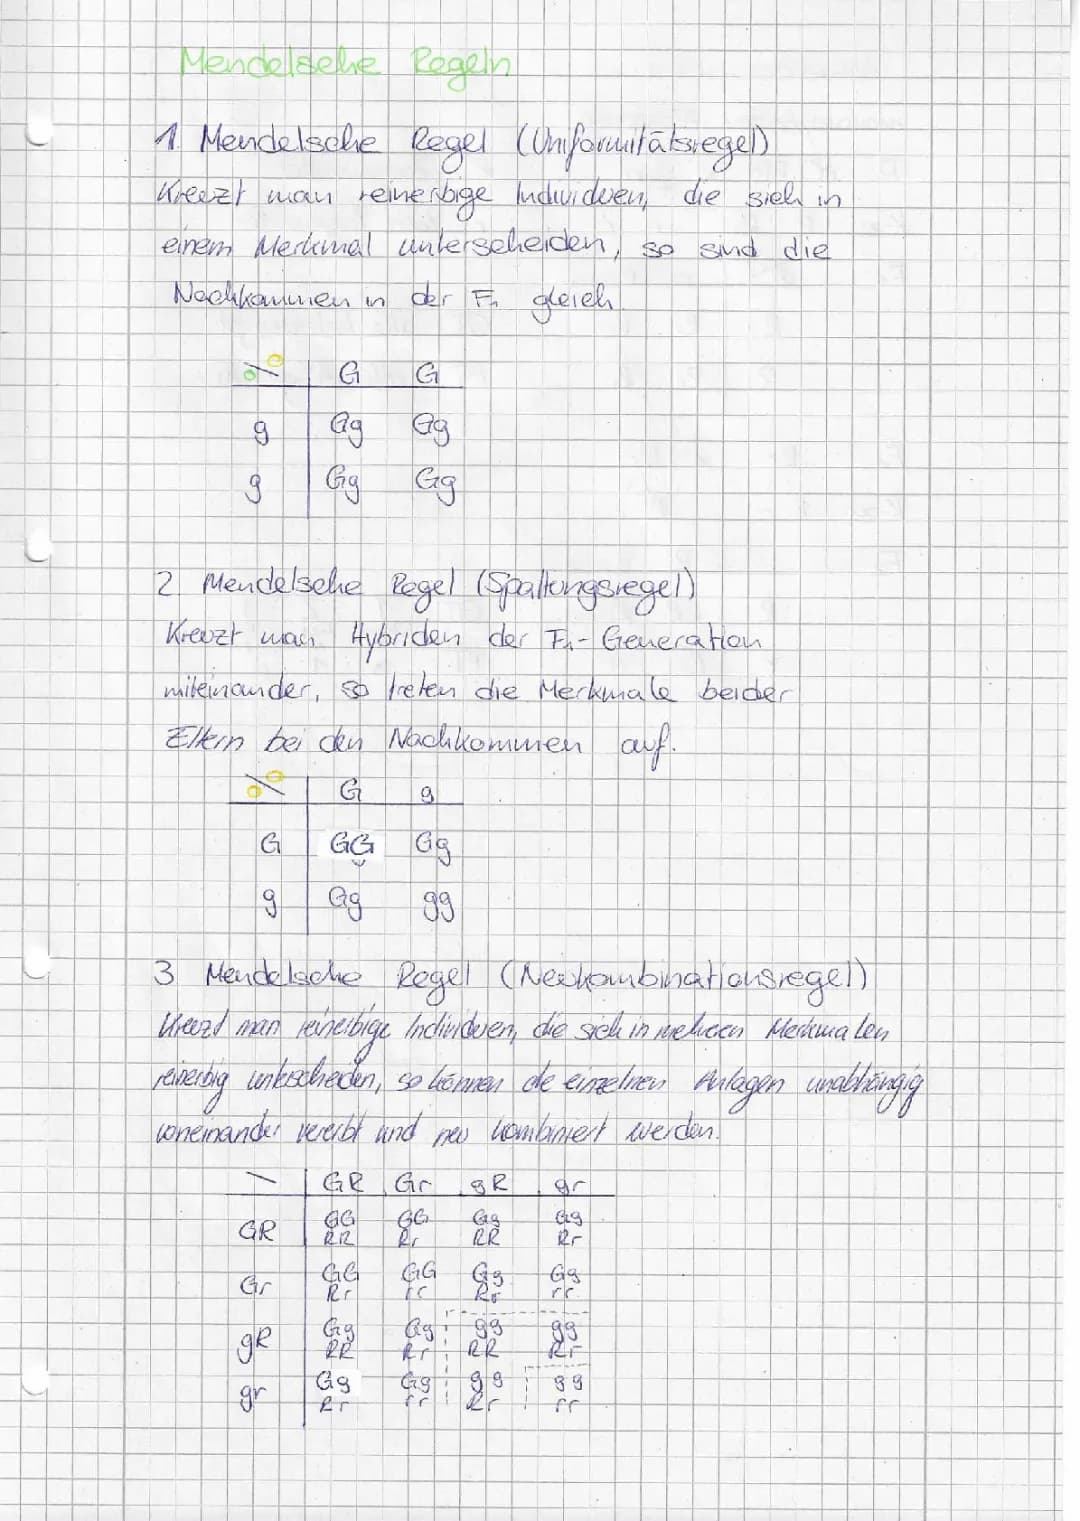 Mendelsche Regeln
1. Mendelsche Regel (Uniformitätsregel)
Kreuzt man reinerbige Individuen, die sich in
einem Merkmal unterscheiden, so sind die
Nachkommen in der F1 gleich.
G G
g Gg Gg
g Gg Gg
2 Mendelsche Regel (Spaltungsregel)
Kreuzt man Hybriden der F1-Generation
miteinander, so treten die Merkmale beider
Eltern bei den Nachkommen auf.
G g
G GG Gg
g Gg gg
3 Mendelsche Regel (Neukombinationsregel)
Kreuzt man reinerbige Individuen, die sich in mehreren Merkmalen
reinerbig unterscheiden, so können die einzelnen Anlagen unabhängig
voneinander vererbt und neu kombiniert werden.
GR Gr gR gr
GR GG GG Gg Gg
RR Rr RR Rr
Gr GG GG Gg Gg
Rr rr Rr rr
gR Gg Gg gg gg
RR Rr RR Rr
gr Gg Gg gg gg
Rr rr Rr rr